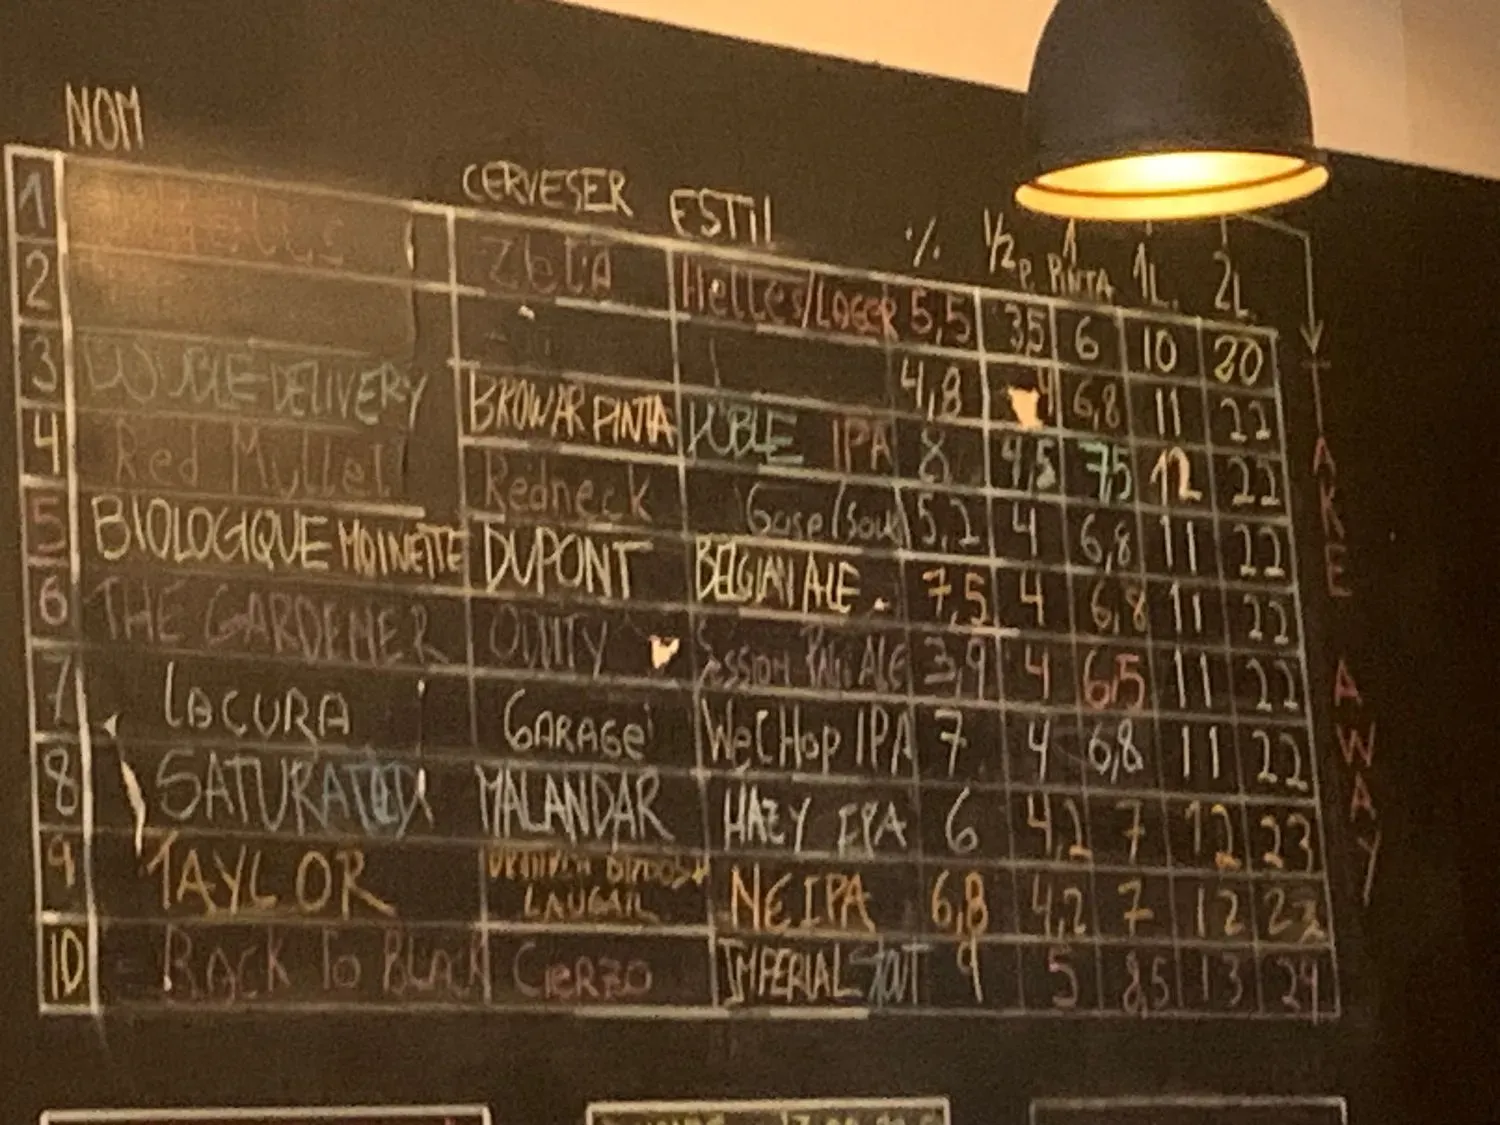 NOM CERVESER ESTIL % 1/2 P. 1 PINTA 1L. 2L
1 Zleta Helles/LAGER 5,5 3,5 6 10 20
2 4,8 4 6,8 11 22
3 DOUBLE DELIVERY BROWAR PINTA DUBLE IPA 8 4,5 7,5 12 22
4 Red Mullet Redneck Gose/Sour 5,2 4 6,8 11 22
5 BIOLOGIQUE MOINETTE DUPONT BELGIAN ALE. 7,5 4 6,8 11 22
6 THE GARDENER ODITY SESSION PALE ALE 3,9 4 6,5 11 22
7 LOCURA GARAGE WeCHop IPA 7 4 6,8 11 22
8 SATURATED MALANDAR HAZY IPA 6 4,2 7 12 23
9 TAYLOR LAUGAR NEIPA 6,8 4,2 7 12 23
10 BACK To BLACK CIERZO IMPERIAL STOUT 9 5 8,5 13 24
TAKE AWAY